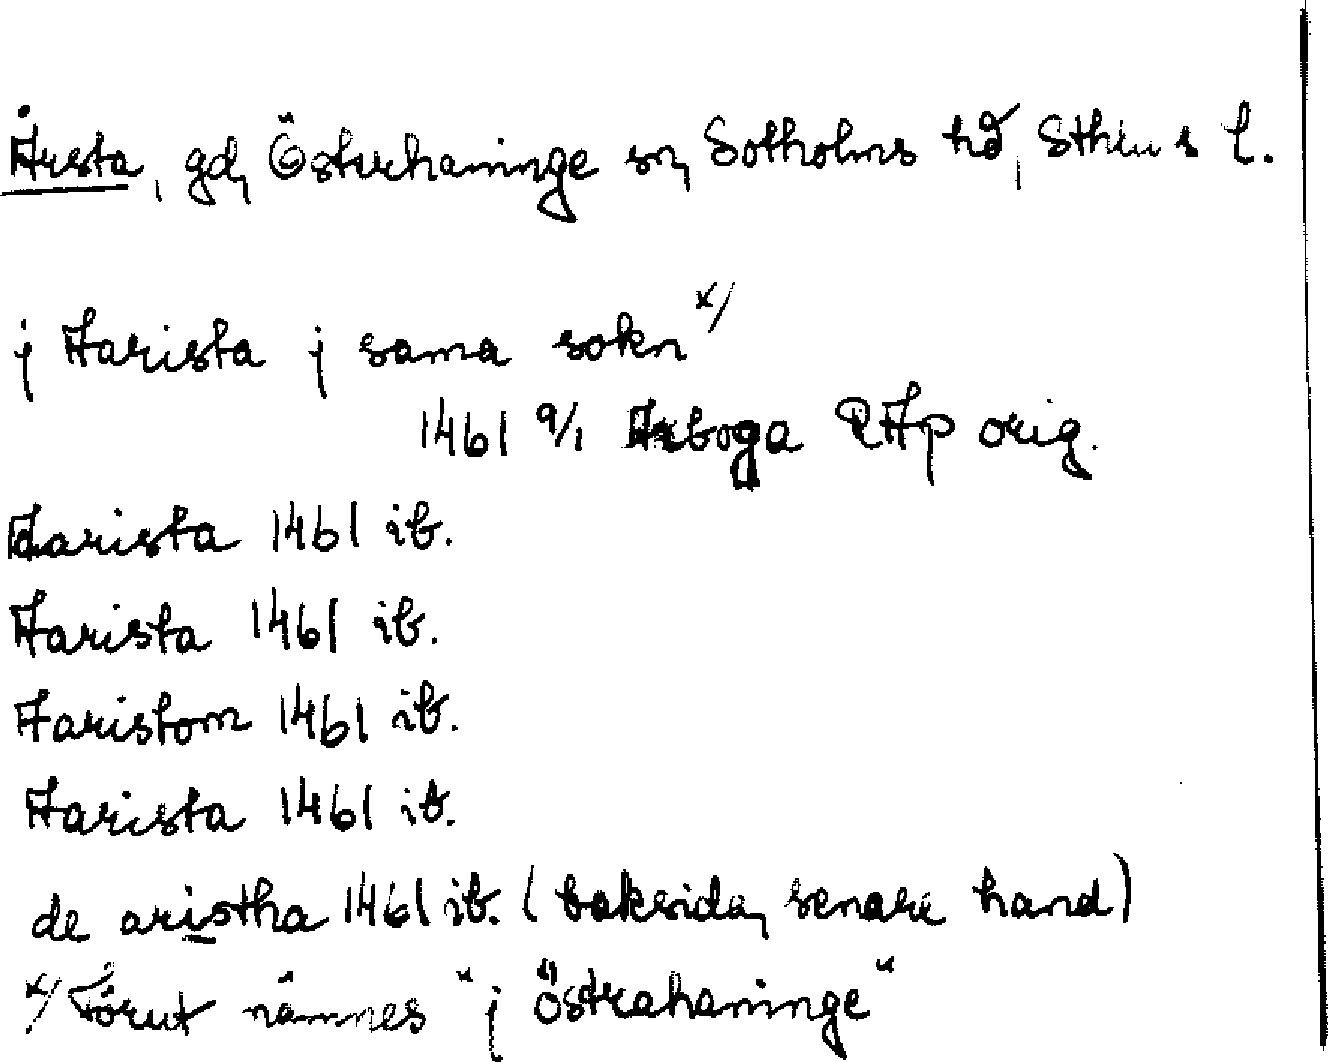 Årsta, gd, Österhaninge sn, Sotholms hd, Sthlms l.
j Aarista j sama sokn x/
1461 9/1 Arboga RAp orig.
Aarista 1461 ib.
Aarista 1461 ib.
Aaristom 1461 ib.
Aarista 1461 ib.
de aristha 1461 ib. (baksida, senare hand)
x/ Förut nämnes "j östrahaninge"